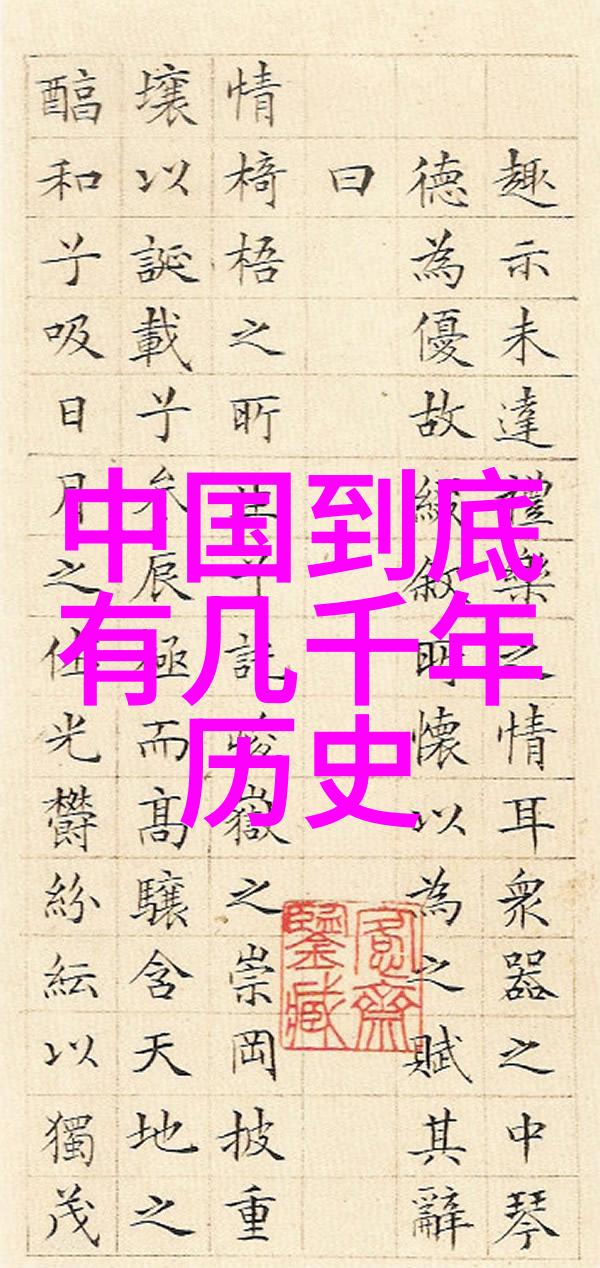 中国到底
有几千年
历史
趣示未達禮樂之情耳衆器之中琴
德為優故綴敘所懷以為之賦其辭
曰
情椅梧之所生兮託峻嶽之崇岡披重
壤以誕載兮參辰極而高驤含天地之
醕和兮吸日月之休光鬱紛紜以獨茂
愙齋
鑒藏